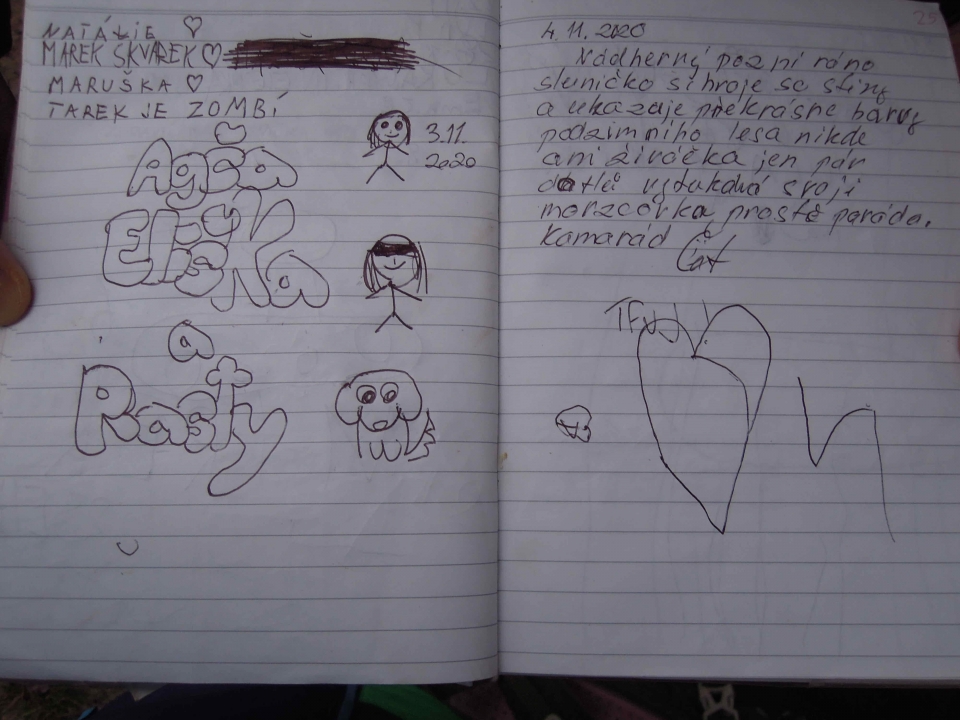 NATÁLIE
MAREK SKVAREK
MARUŠKA
TAREK JE ZOMBÍ
Agča
Eliška
a
Rasty
3.11.
2020
25
4.11.2020
Nádherný pozní ráno
sluničko si hroje se stíny
a ukazuje překrásne barvy
podzimního lesa nikde
ani živáčka jen pár
datlů vytukává svoji
morzeovka prostě paráda.
Kamarád